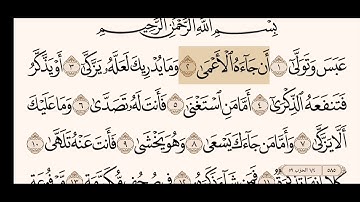 بِسْمِ اللَّهِ الرَّحْمَٰنِ الرَّحِيمِ
عَبَسَ وَتَوَلَّىٰ ١ أَن جَاءَهُ الْأَعْمَىٰ ٢ وَمَا يُدْرِيكَ لَعَلَّهُ يَزَّكَّىٰ ٣ أَوْ يَذَّكَّرُ
فَتَنفَعَهُ الذِّكْرَىٰ ٤ أَمَّا مَنِ اسْتَغْنَىٰ ٥ فَأَنتَ لَهُ تَصَدَّىٰ ٦ وَمَا عَلَيْكَ
أَلَّا يَزَّكَّىٰ ٧ وَأَمَّا مَن جَاءَكَ يَسْعَىٰ ٨ وَهُوَ يَخْشَىٰ ٩ فَأَنتَ عَنْهُ تَلَهَّىٰ ١٠